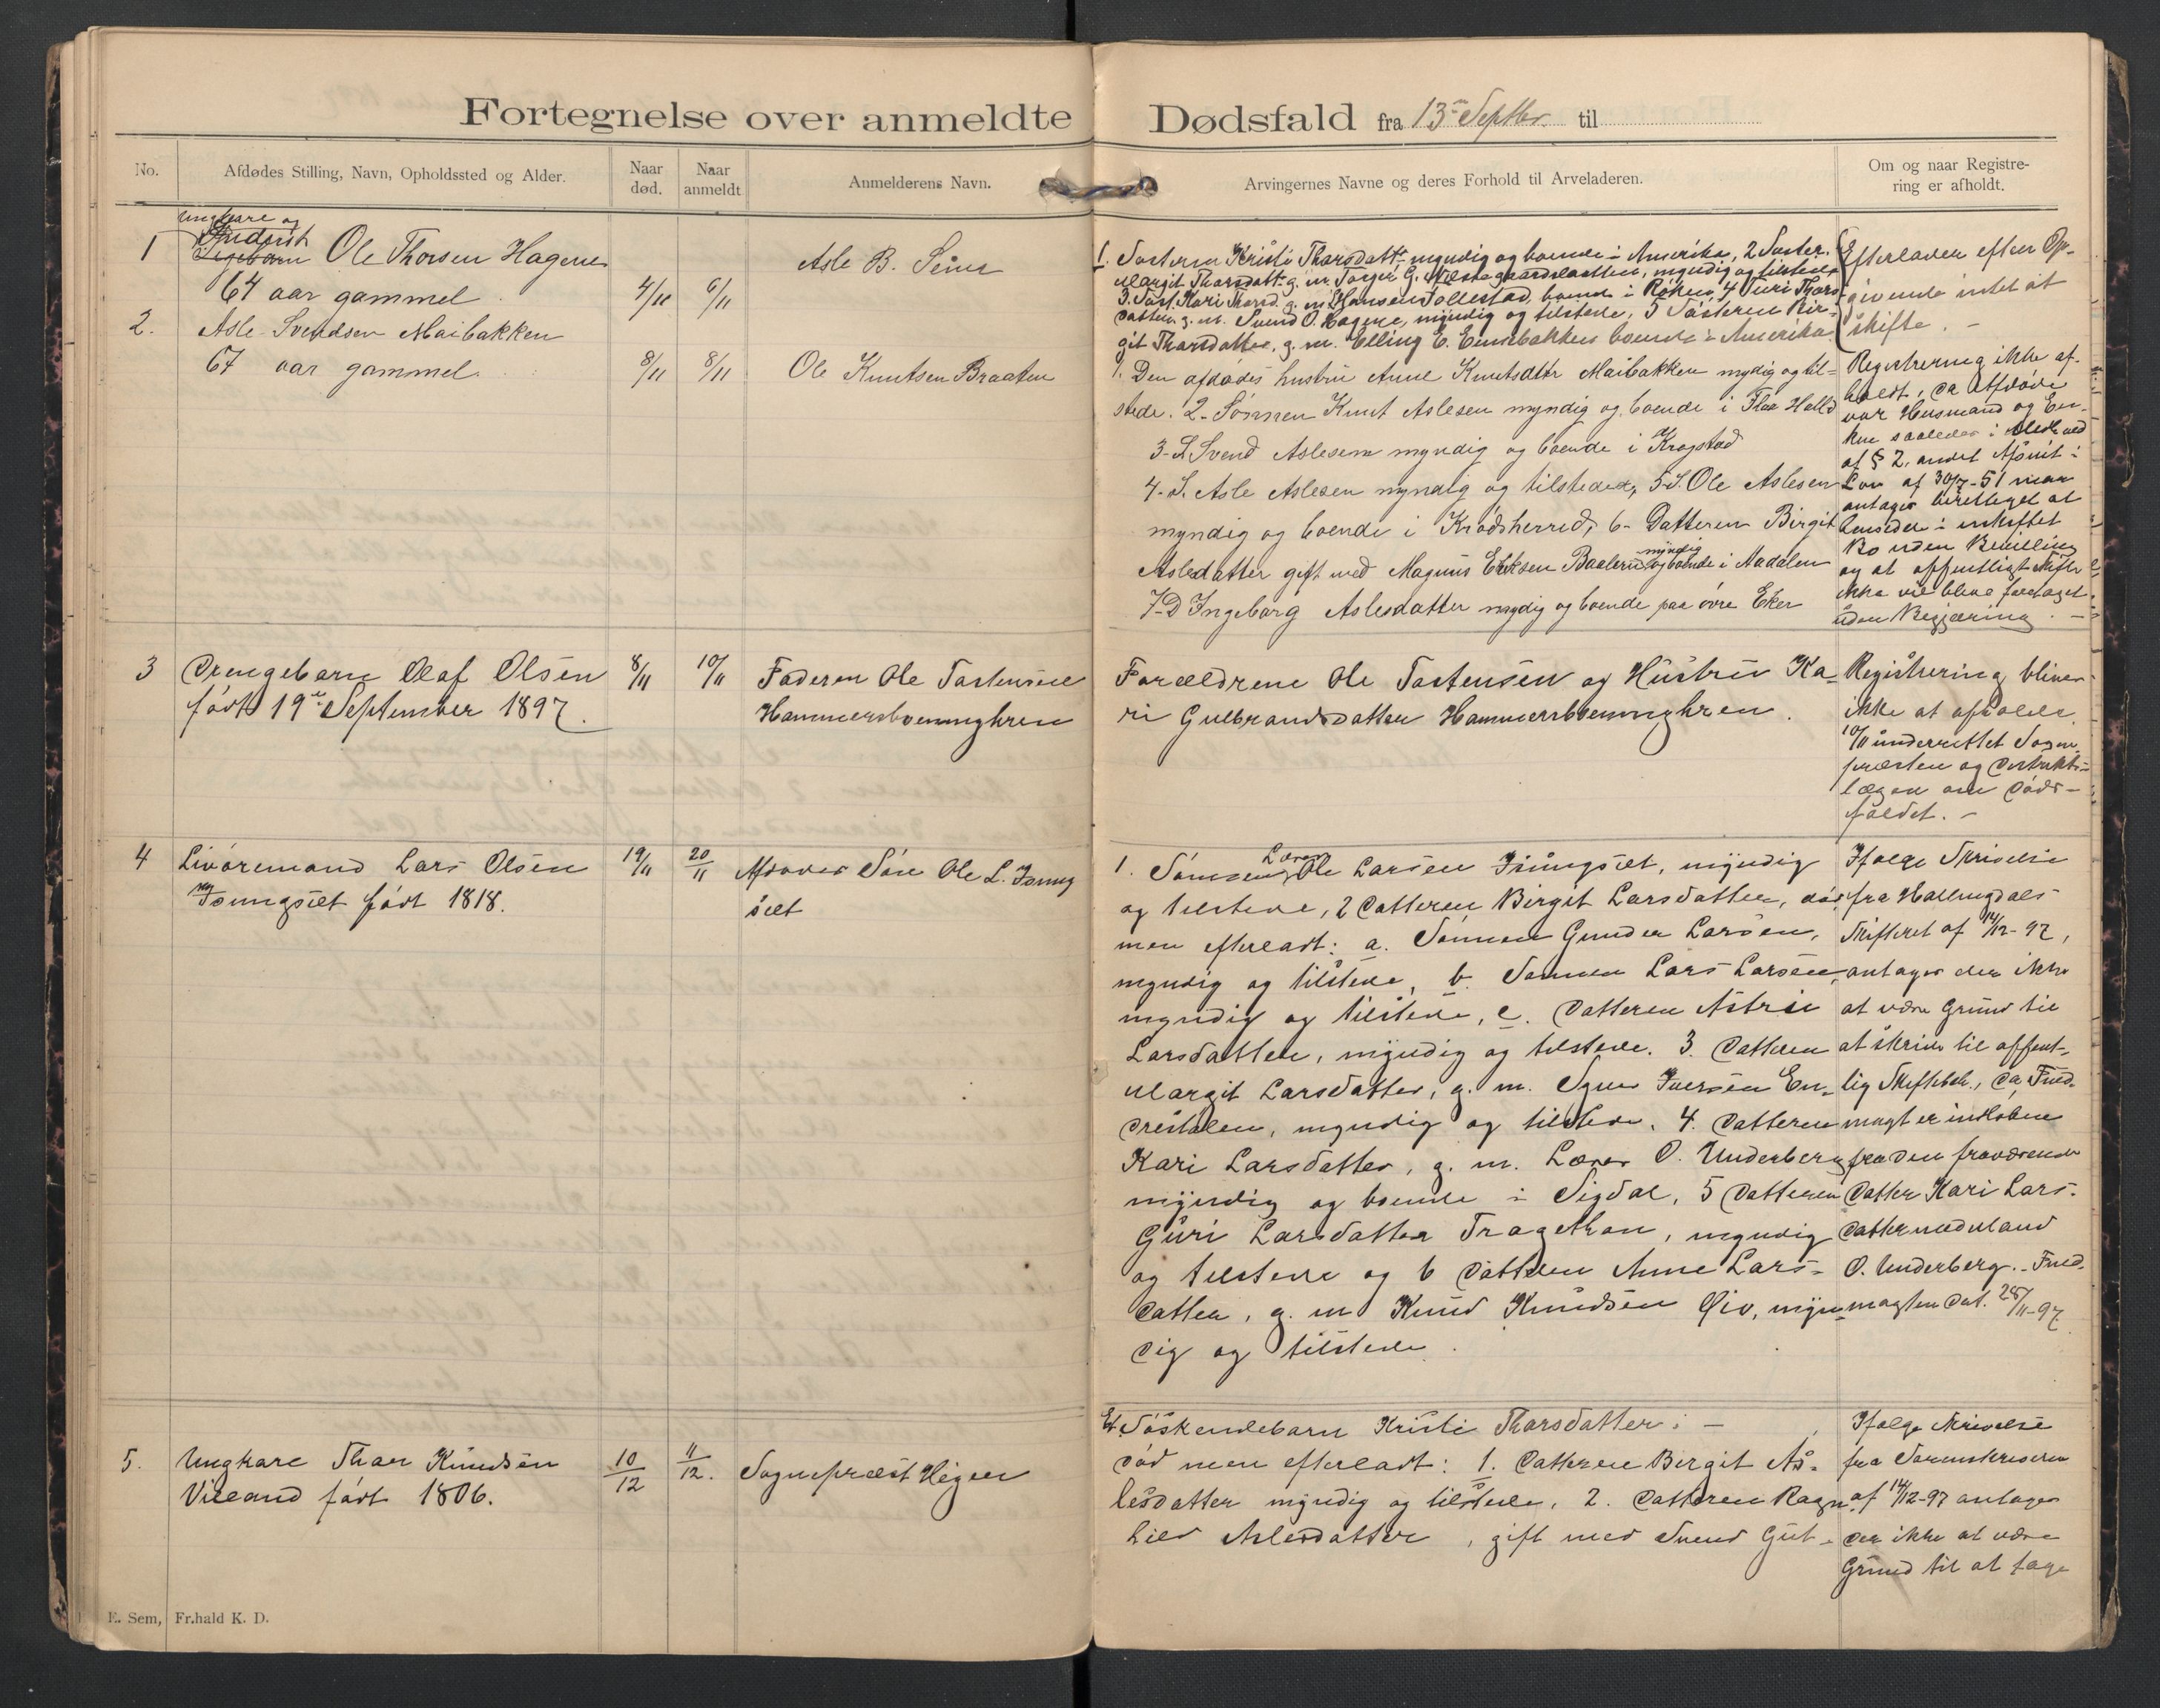 Fortegnelse over anmeldte Dødsfald fra 13de Septbr. til
No.
Afdødes Stilling, Navn, Opholdssted og Alder.
Naar død.
Naar anmeldt
Anmelderens Navn.
Arvingernes Navne og deres Forhold til Arveladeren.
Om og naar Registre-
ring er afholdt.
Ungkare og
Inderst
1 Ole Thorsen Hagene
64 aar gammel
4/11 6/11
Asle B. Seim
1. Søsteren Kristi Thorsdattr myndig og boende i Amerika, 2 Søster
Margit Thorsdatt. g. m. Torger G. myndig og tilstede
3. Søst. Kari Thorsd. g. m. Hansen Tollestad, boende i Røken, 4 Guri Thors
datter g. m. Svend O. Hagene, myndig og tilstede, 5 Søsteren Bir-
git Thorsdatter, g. m. Elling E. boende i Amerika
Efterlader efter Op-
givende intet at
skifte. -
2. Asle Svendsen Maibakken
67 aar gammel.
8/11 8/11
Ole Knutsen Braaten
1. Den afdødes hustru Anne Knutsdttr Maibakken mydig og til-
stede. 2. Sønnen Knut Aslesen myndig og boende i Flaa Halld
3. S Svend Aslesen myndig og boende i Krogstad
4. S. Asle Aslesen myndig og tilstede, 5 S. Ole Aslesen
myndig og boende i Krødsherred, 6. Datteren Birgit
Aslesdatter gift med Magnus Eriksen myndig og boende i Aadalen
7. D Ingeborg Aslesdatter mydig og boende paa øvre Eker
Registrering ikke af-
holdt, da Afdøde
var Husmand og En-
ken saaledes i Medhold
af § 2, andet Afsnit i
Lov af 30/7-51 maa
antages berettiget at
hensidde i uskiftet
Bo uden Bevilling
og at offentligt Skifte
ikke vil blive foretaget
uden Begjæring. -
3 Drengebarn Olaf Olsen
født 19de September 1897.
8/11 10/11
Faderen Ole Tostensen
Hammersbøenmyhren
Forældrene Ole Tostensen og Hustru Ka-
ri Gulbrandsdatter Hammersbøenmyhren.
Registrering bliver
ikke at afholde.
10/11 underrettet Sogne-
præsten og Distrikts-
lægen om Døds-
faldet. -
4 Livøremand Lars Olsen
født 1818.
19/11 20/11
Afdødes Søn Ole L.
set
1. Sønnen Lærer Ole Larsen myndig
og tilstede, 2 Datteren Birgit Larsdatter, død
men efterladt: a. Sønnen Gunder Larsen,
myndig og tilstede, b. Sønnen Lars Larsen,
myndig og tilstede, c. Datteren Astri
Larsdatter, myndig og tilstede. 3. Datteren
Margit Larsdatter, g. m. Iversen En-
drestølen, myndig og tilstede, 4. Datteren
Kari Larsdatter, g. m. Lærer O. Underberg
myndig og boende i Sigdal, 5 Datteren
Guri Larsdatter Tragethon, myndig
og tilstede og 6 Datteren Anne Lars-
datter, g. m Knud Knudsen Gøiv, myn-
dig og tilstede.
Ifølge Skrivelse
fra Hallingdals
Skifteret af 14/12-97,
antages der ikke
at være Grund til
at skride til offent-
lig Skiftebeh., da Fuld-
magt er indløben
fra den fraværende
Datter Kari Lars-
datters Mand
O. Underberg. - Fuld-
magten dat. 28/11-97
5. Ungkare Thor Knudsen
Villand født 1806.
10/12 11/12.
Sogneprest Hejer
Et Søskendebarn Kristi Thorsdatter: -
død men efterladt: 1. Datteren Birgit As-
lesdatter myndig og tilstede, 2. Datteren Ragn-
hild Aslesdatter, gift med Svend Gut-
Ifølge Skrivelse
fra Sorenskriveren
af 14/12-97 antages
der ikke at være
Grund til at tage
E. Sem, Fr.hald K. D.